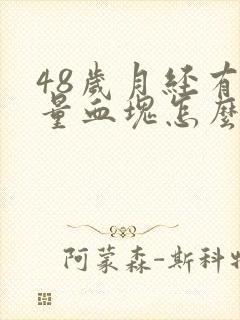 48歲月经有
量血塊怎麽
阿蒙森-斯科特